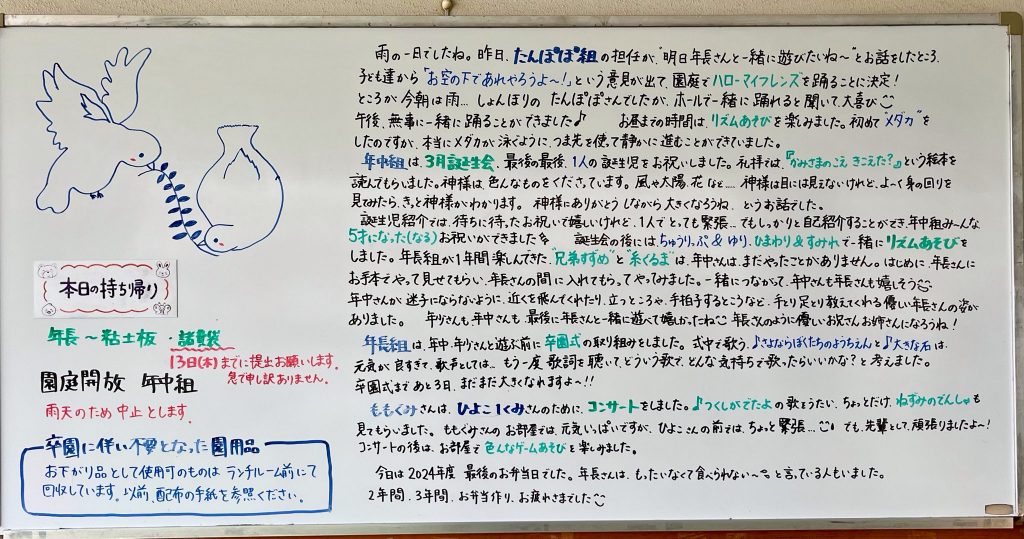 本日の持ち帰り
年長～粘土板・諸費袋
13日(木)までに提出お願いします。
急で申し訳ありません。
園庭開放 年中組
雨天のため中止とします。
卒園に伴い不要となった園用品
お下がり品として使用可のものは ランチルーム前にて
回収しています。以前、配布の手紙を参照ください。
雨の一日でしたね。昨日、たんぽぽ組の担任が、“明日年長さんと一緒に遊びたいね～”とお話をしたところ、
子ども達から「お空の下であれやろうよ～!」という意見が出て、園庭でハローマイフレンズを踊ることに決定!
ところが今朝は雨… しょんぼりの たんぽぽさんでしたが、ホールで一緒に踊れると聞いて、大喜び
午後、無事に一緒に踊ることができました♪ お昼までの時間は、リズムあそびを楽しみました。初めて“メダカ”を
したのですが、本当にメダカが泳ぐように、つま先を使って静かに進むことができていました。
年中組は、3月誕生会。最後の最後、1人の誕生児をお祝いしました。礼拝では、『かみさまのこえ きこえた?』という絵本を
読んでもらいました。神様は、色んなものをくださっています。風や太陽、花など…. 神様は目には見えないけれど、よ～く身の回りを
見てみたら、きっと神様がわかります。神様にありがとうしながら大きくなろうね、というお話でした。
誕生児紹介では、待ちに待ったお祝いで嬉しいけれど、1人でとっても緊張…でもしっかりと自己紹介することができ、年中組み～んな
5才になった(なる)お祝いができました 誕生会の後には、ちゅうりっぷ & ゆり、ひまわり & すみれで一緒にリズムあそびを
しました。年長組が1年間楽しんできた、“兄弟すずめ”と“糸ぐるま”は、年中さんは、まだやったことがありません。はじめに、年長さんに
お手本でやって見せてもらい、年長さんの間に入れてもらってやってみました。一緒につながって、年中さんも年長さんも嬉しそう
年中さんが迷子にならないように、近くを飛んでくれたり、立つところや、手拍子するところなど、手とり足とり教えてくれる優しい年長さんの姿が
ありました。 年少さんも、年中さんも、最後に年長さんと一緒に遊べて嬉しかったね 年長さんのように優しいお兄さんお姉さんになろうね!
年長組は、年中・年少さんと遊ぶ前に卒園式の取り組みをしました。式中で歌う、♪さよならぼくたちのようちえんと♪大きな石は、
元気が良すぎて、歌声としては… もう一度、歌詞を聴いて、どういう歌で、どんな気持ちで歌ったらいいかな?と考えました。
卒園式まであと3日、まだまだ大きくなれますよ～!!
ももぐみさんは、ひよこ1くみさんのために、コンサートをしました。♪つくしがでたよの歌をうたい、ちょっとだけ、ねずみのでんしゃも
見てもらいました。ももぐみさんのお部屋では、元気いっぱいですが、ひよこさんの前では、ちょっと緊張… でも、先輩として、頑張りましたよ～!
コンサートの後は、お部屋で色んなゲームあそびを楽しみました。
今日は2024年度 最後のお弁当日でした。年長さんは、もったいなくて食べられない～と言っている人もいました。
2年間、3年間、お弁当作り、お疲れさまでした